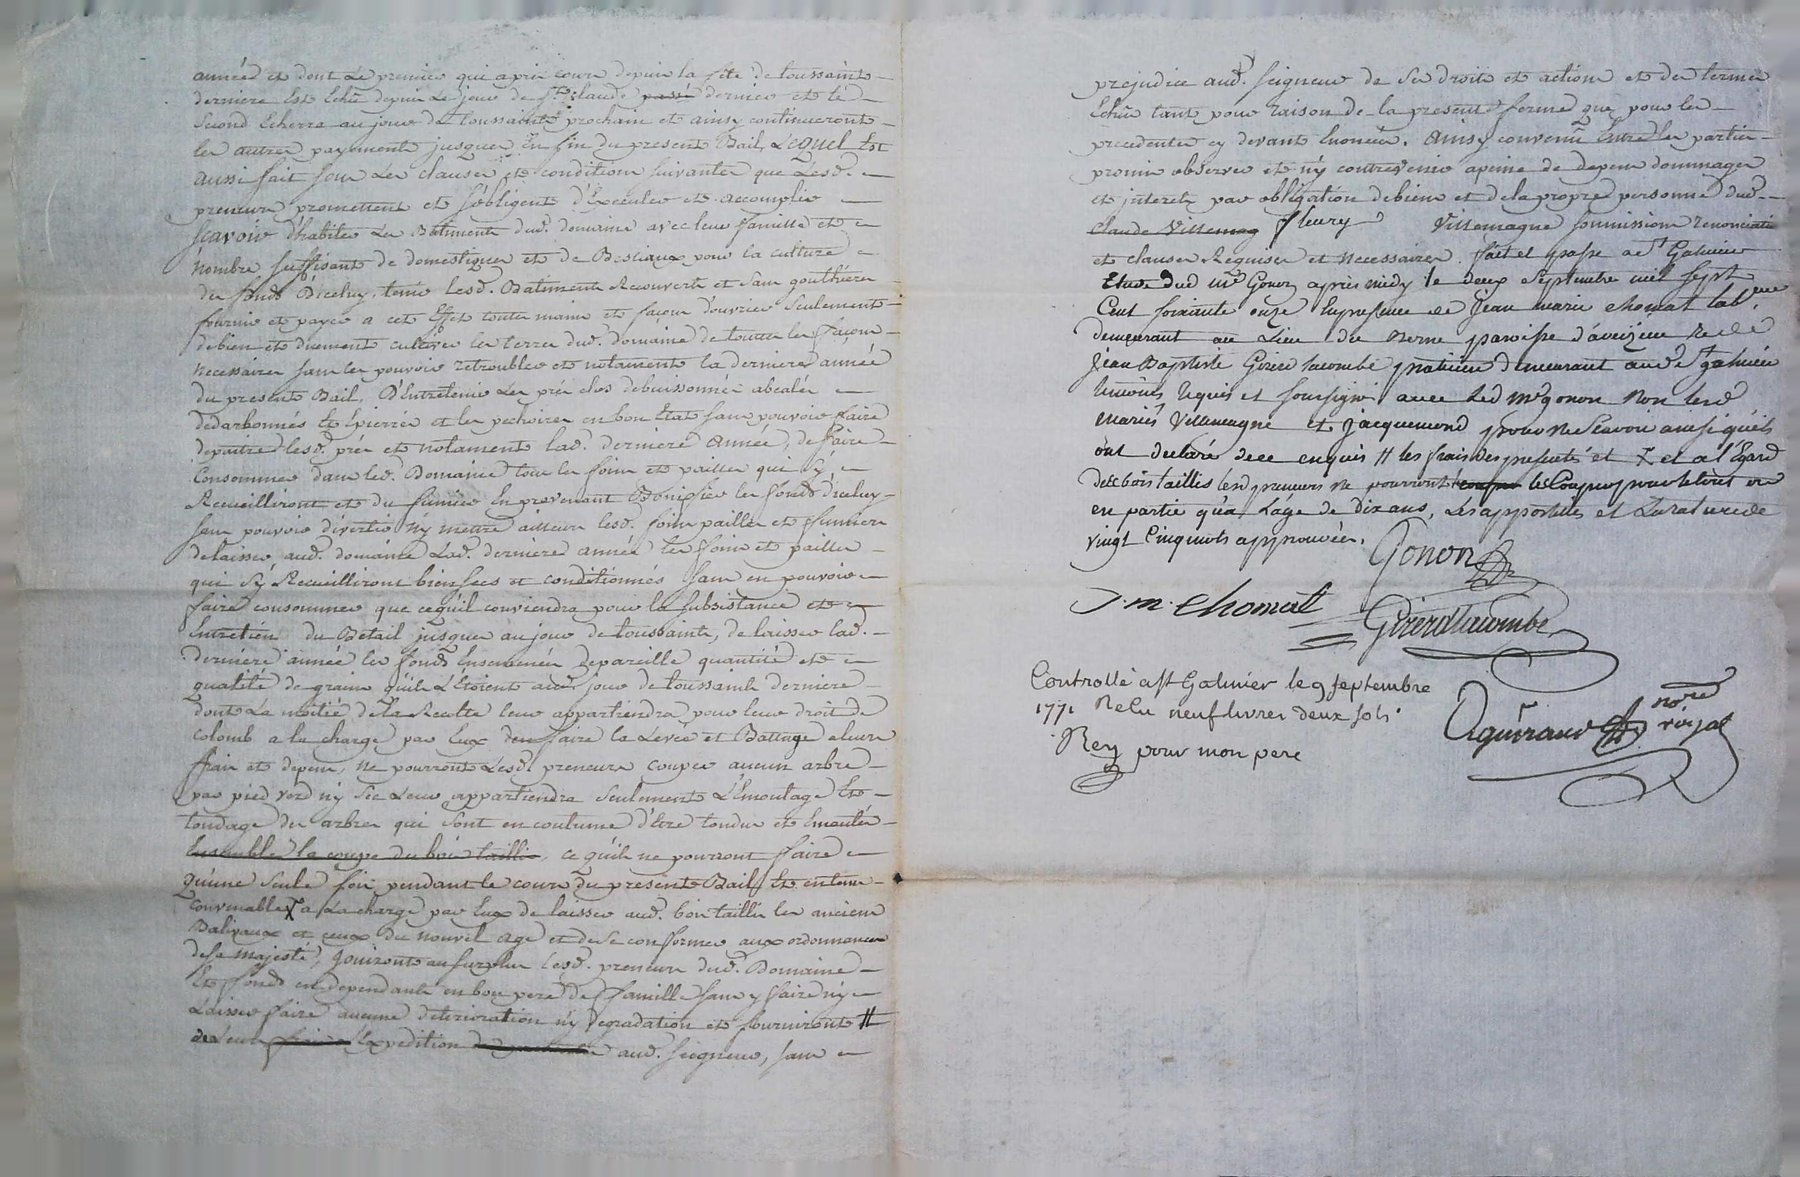 années et dont le premier qui a pris cours depuis la fête de toussaints
derniere Est Echû depuis le jour de St. Claude passé dernier et le
second Echerra au jour de toussaints prochain et ainsy continueront
les autres payements jusques En fin du present Bail, LEQUEL Est
aussi fait sous les clauses et conditions suivantes que Lesd.
preneurs promettent et s'obligent d'Executer et accomplir
scavoir d'habiter Les Batiments dud. domaine avec leur famille et
nombre suffisant de domestiques et de Bestiaux pour la culture
des fonds D'iceluy, tenir lesd. Batiments Recouverts et sans gouthieres
fournir et payer a cet Effet toutes mains et façons d'ouvrier seulement
de bien et duement cultiver les terres dud. domaine de toutes les façons
necessaires sans les pouvoir retroubler et notament la derniere année
du present Bail, D'Entretenir Les prés clos debuissonnés
et les pechoires en bon Etat sans pouvoir faire
depaitre lesd. prés et notament lad. derniere année, de faire
Consommer dans led. Domaine tous les foins et pailles qui s'y
Recueilliront et du fumier En provenant Bonifier les fonds d'iceluy
sans pouvoir divertir ny mettre ailleurs lesd. foins pailles et fumiers
delaisser aud. domaine Lad. derniere année les foins et pailles
qui s'y Recueilliront bien secs et conditionnés sans en pouvoir
faire consommer que ce qu'il conviendra pour la subsistance et
Entretien du Betail jusques au jour de toussaints, de laisser lad.
derniere année les fonds Ensemencés de pareille quantité et
qualité de grains qu'ils L'Etoient aud. jour de toussaints derniere
dont La moitié de la Recolte leur appartiendra pour leur droit de
colomb a la charge par Eux d'en faire la Levée et Battage a leurs
frais et depens, ne pourront Lesd. preneurs couper aucun arbre
par pied verd ny sec Leur appartiendra seulement L'Emoulage Et
tondage des arbres qui sont en coutume d'Etre tondus et Emoulés
Ensemble la coupe du bois taillis, ce qu'ils ne pourront faire
qu'une seule fois pendant le cours du present Bail Et en tems
convenable X a La charge par Eux de laisser aud. bois taillis les anciens
Balivaux et ceux du nouvel age et de se conformer aux ordonnances
de sa majesté, Jouiront au surplus lesd. preneurs dud. Domaine
Et fonds en dependants en bon pere de famille sans y faire ny
Laisser faire aucune deterioration ny degradation et fourniront #
Expedition aud. seigneur, sans
prejudice aud. seigneur de ses droits et actions et des termes
Echûs tant pour raison de la presente ferme que pour les
precedentes cy devant Enoncés. Ainsy convenu Entre les parties
promis observer et n'y contrevenir a peine de depens dommages
et interets par obligation de biens et de la propre personne dud.
claude Villemag fleury Villemagne soumissions renonciations
et clauses Requises et necessaires. fait et passé a St Galmier
Etude dud me Gonon après midy le deux Septembre mil sept
Cent soixante onze En presence de Jean marie chomat lab.eur
demeurant au Lieu du Verne paroisse d'aveizieu et de
Jean Baptiste Girerd lacombe praticien demeurant aud St galmier
temoins Requis et soussignés avec led me gonon Non lesd
mariés Villemagne et Jacquemond pour ne scavoir ainsi qu'ils
ont declaré de ce enquis # les frais des presentes et X et a l'Egard
desd. bois taillis lesd preneurs ne pourront les Couper
en partie qu'a L'age de dix ans, Les apostilles et La rature de
vingt Cinq mots approuvées.
Gonon
J. m. Chomat
Girerd Lacombe
Controllé a St Galmier le 9 septembre
1771 Recu neuf livres deux sols
Rey pour mon pere
Aguiraud nore
royal